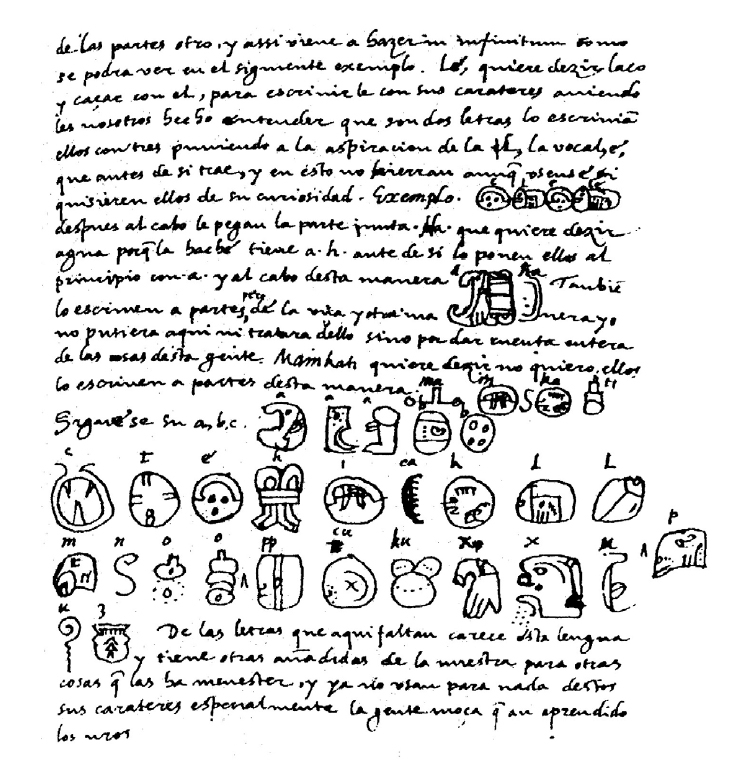 de las partes otro, y assi viene a hazer in infinitum como
se podra ver en el siguiente exemplo. Lé, quiere dezir laço
y caçar con el, para escrivir le con sus carateres aviendo
les nosotros hecho entender que son dos letras lo escrivian
ellos con tres puniendo a la aspiracion de la l, la vocal, é,
que antes de si trae, y en esto no hierran aunq̃ usense si
quisieren ellos de su curiosidad. Exemplo. e l e lé
despues al cabo le pegan la parte junta. Ha. que quiere dezir
agua porq̃ la haché tiene a. h. ante de si lo ponen ellos al
principio con a. y al cabo desta manera a ha Tanbié
lo escriven a partes, pero de la una y otra ma nera yo
no pusiera aqui ni tratara dello sino por dar cuenta entera
de las cosas desta gente. Mainkati quiere dezir no quiero, ellos
lo escriven a partes desta manera ma i n ka ti
Siguese su a, b, c. a a a b b
c t é h i ca k l l
m n o o pp cu ku x x u p
u z De las letras que aqui faltan carece esta lengua
y tiene otras añadidas de la nuestra para otras
cosas q̃ las ha menester, y ya no usan para nada destos
sus carateres especialmente la gente moça q̃ an aprendido
los nros